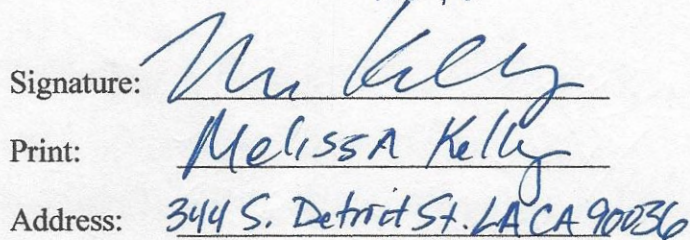 Signature: M Kelly
Print: Melissa Kelly
Address: 344 S. Detroit St. LA CA 90036